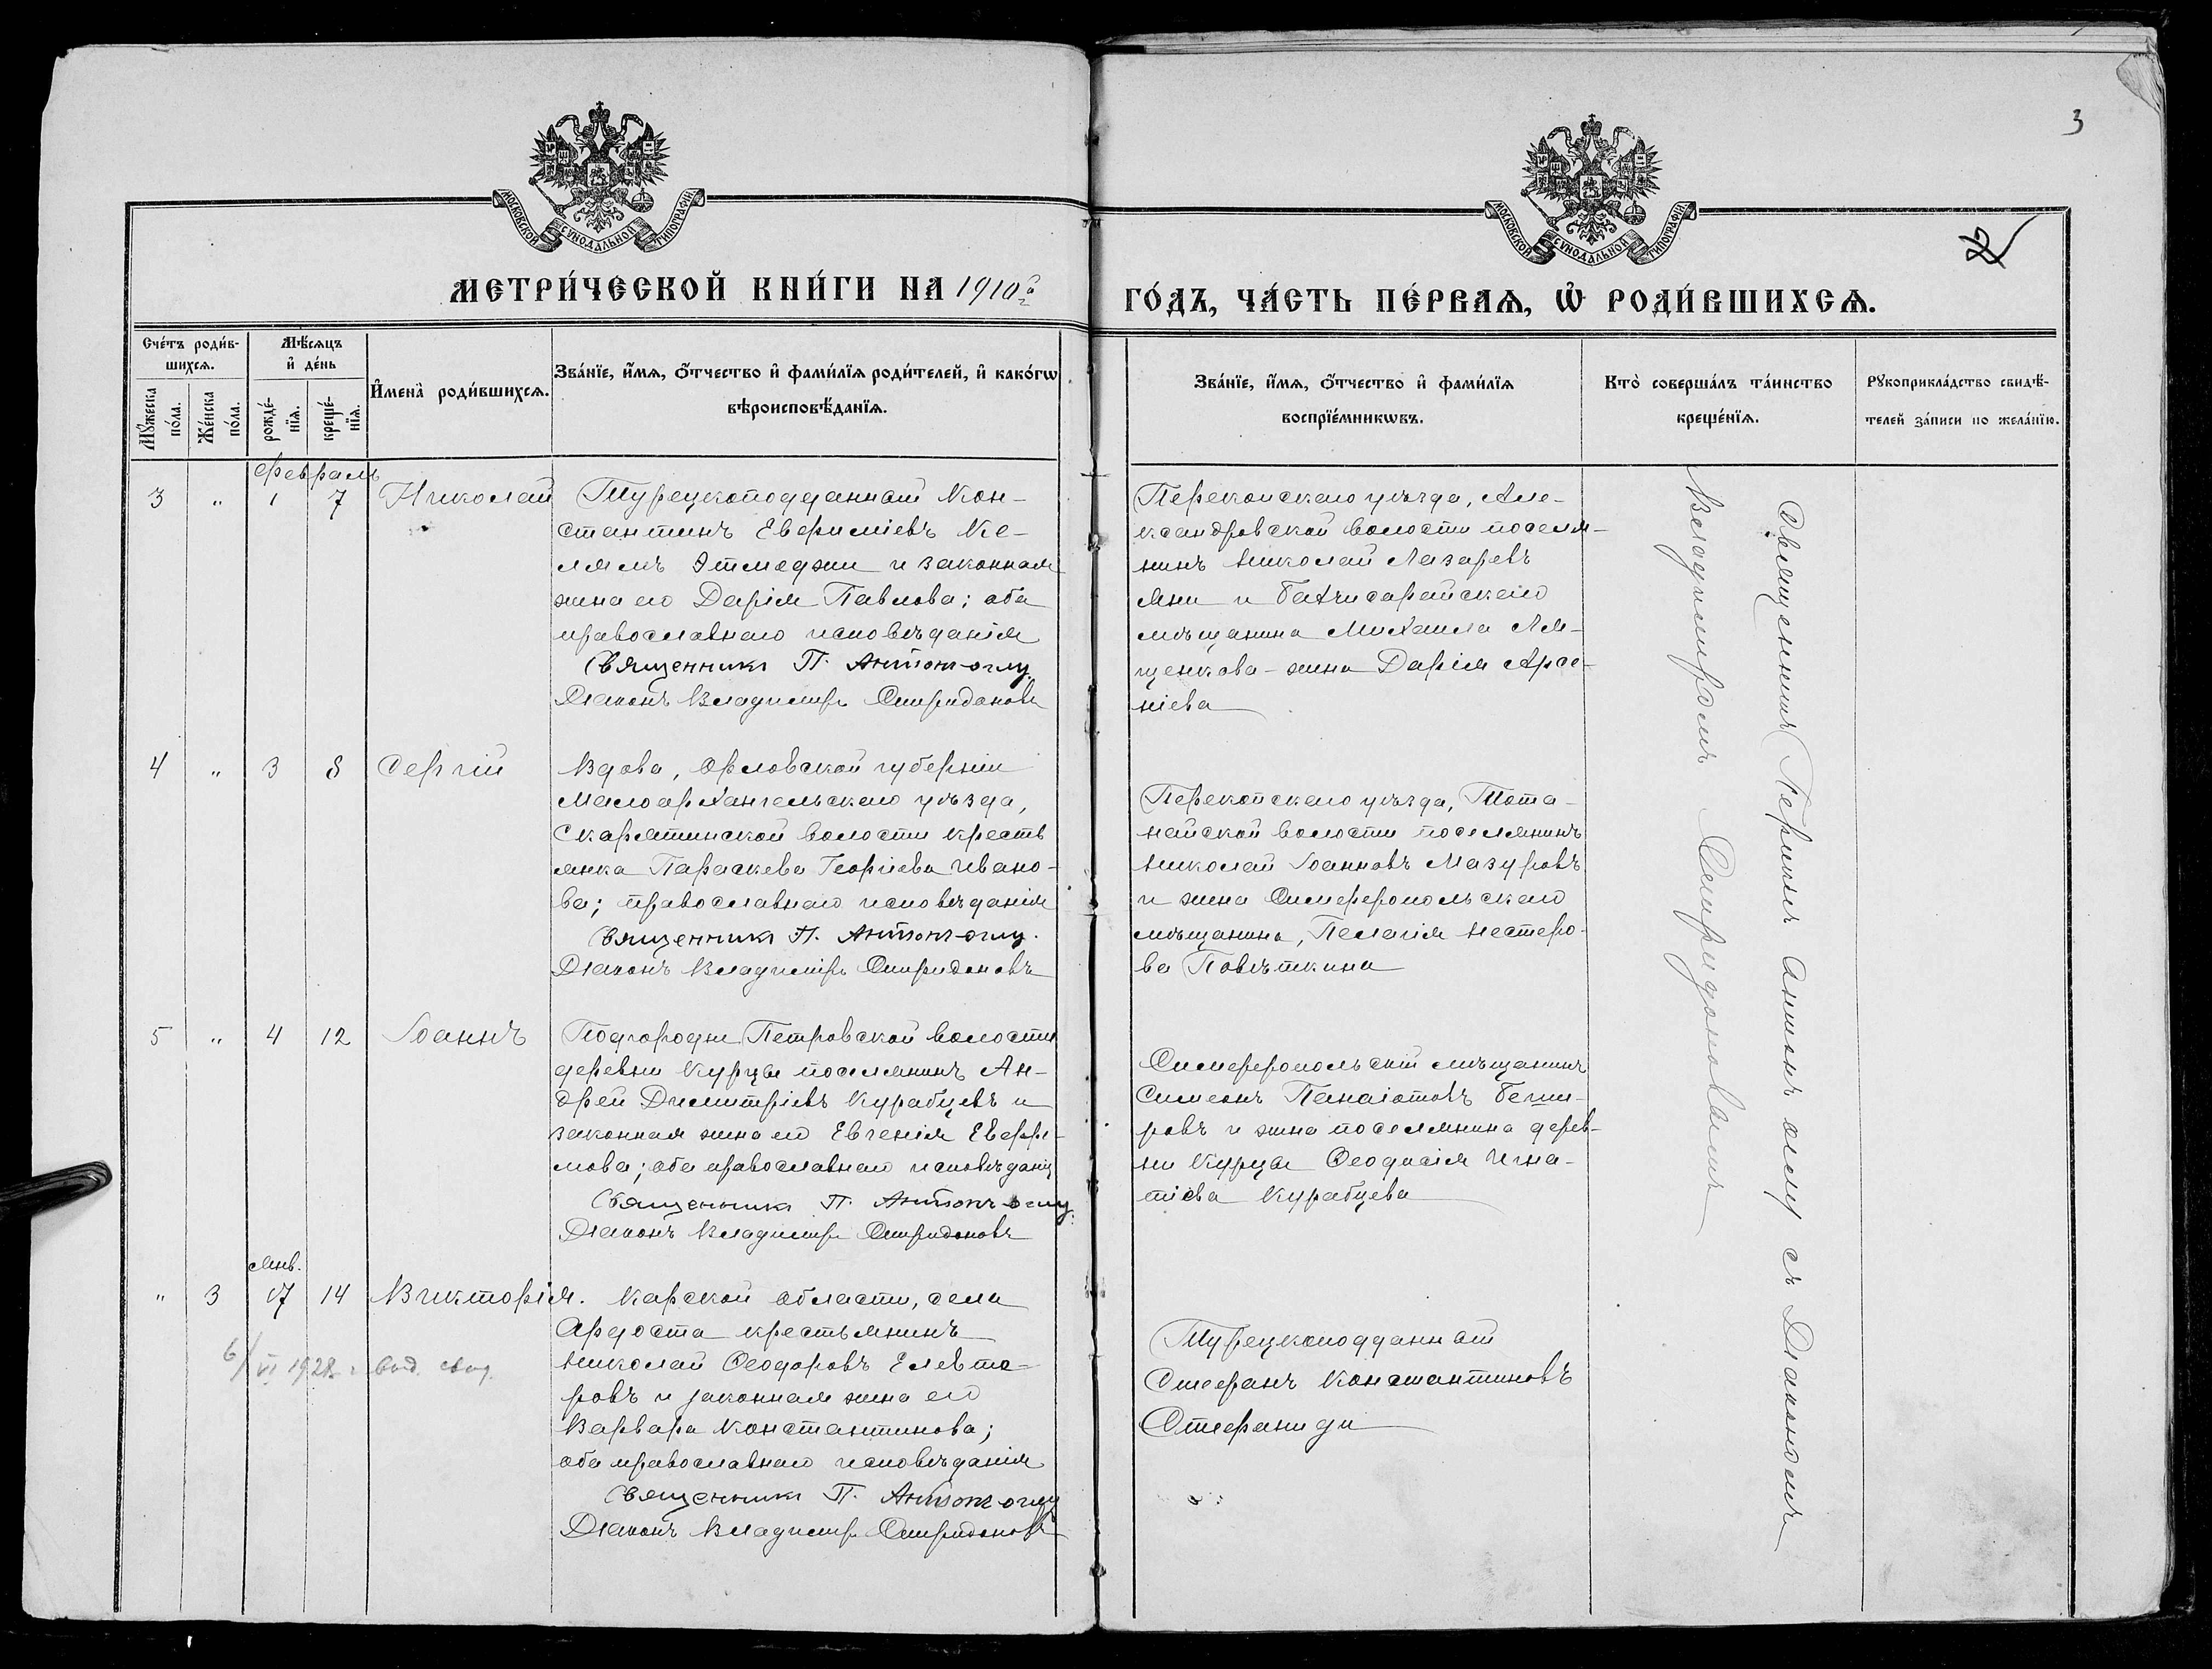 3
2
МОСКОВСКОЙ СѴНОДАЛЬНОЙ ТИПОГРАФІИ
МОСКОВСКОЙ СѴНОДАЛЬНОЙ ТИПОГРАФІИ
МЕТРИ́ЧЕСКОЙ КНИ́ГИ НА 1910й
ГО́ДЪ, ЧА́СТЬ ПЕ́РВАѦ, Ѡ҆ РОДИ́ВШИХСѦ.
Сче́тъ роди́в-
шихсѧ.
Мꙋ́жеска по́ла.
Же́нска по́ла.
Мѣ́сѧцъ
и҆ де́нь
рожде́-
нїѧ.
креще́-
нїѧ.
И҆мена̀ роди́вшихсѧ.
Зва́нїе, и҆́мѧ, ѻ҆́тчество и҆ фами́лїѧ роди́телей, и҆ како́гѡ
вѣроисповѣ́данїѧ.
Зва́нїе, и҆́мѧ, ѻ҆́тчество и҆ фами́лїѧ
воспрїе́мникѡвъ.
Кто̀ соверша́лъ та́инство
креще́нїѧ.
Рꙋкоприкла́дство свидѣ́-
телей за́писи по жела́нїю.
Февраль
3 " 1 7 Николай
Турецкоподданный Кон-
стантинъ Евфиміевъ Ке-
лямъ Этмеджи и законная
жена его Дарія Павлова; оба
православнаго исповѣданія
Священникъ П. Антонъ-оглу.
Діаконъ Владиміръ Спиридоновъ
Перекопскаго уѣзда, Але-
ксандровской волости поселя-
нинъ Николай Лазаревъ
Яни и Бахчисарайскаго
мѣщанина Михаила Ля-
щенкова - жена Дарія Арсе-
ніева
4 " 3 8 Сергій
Вдова, Орловской губерніи
Малоархангельскаго уѣзда,
Скарятинской волости кресть
янка Параскева Георгіева Ивано-
ва; православнаго исповѣданія
Священникъ П. Антонъ-оглу.
Діаконъ Владиміръ Спиридоновъ
Перекопскаго уѣзда, Тота-
найской волости поселянинъ
Николай Іоанновъ Мазуровъ
и жена Симферопольскаго
мѣщанина, Пелагія Нестеро-
ва Повѣткина
5 " 4 12 Іоаннъ
Подгородне Петровской волости
деревни Курцы поселянинъ Ан-
дрей Димитріевъ Курабцевъ и
законная жена его Евгенія Евфи-
мова; оба православнаго исповѣданія
Священникъ П. Антонъ-оглу.
Діаконъ Владиміръ Спиридоновъ
Симферопольскій мѣщанинъ
Симеонъ Панаіотовъ
и жена поселянина дерев-
ни Курцы Ѳеодосія Игна-
тіева Курабцева
Янв.
" 3 17 14 Викторія.
Карской области, села
Ардоста крестьянинъ
Николай Ѳеодоровъ Елевте-
ровъ и законная жена его
Варвара Константинова;
оба православнаго исповѣданія
Священникъ П. Антонъ-оглу
Діаконъ Владиміръ Спиридоновъ
6/VI 1928 г. выд. свид.
Турецкоподданный
Стефанъ Константиновъ
Стефаниди
Священникъ Периклъ Антонъ оглу съ Діакономъ
Владиміромъ Спиридоновымъ